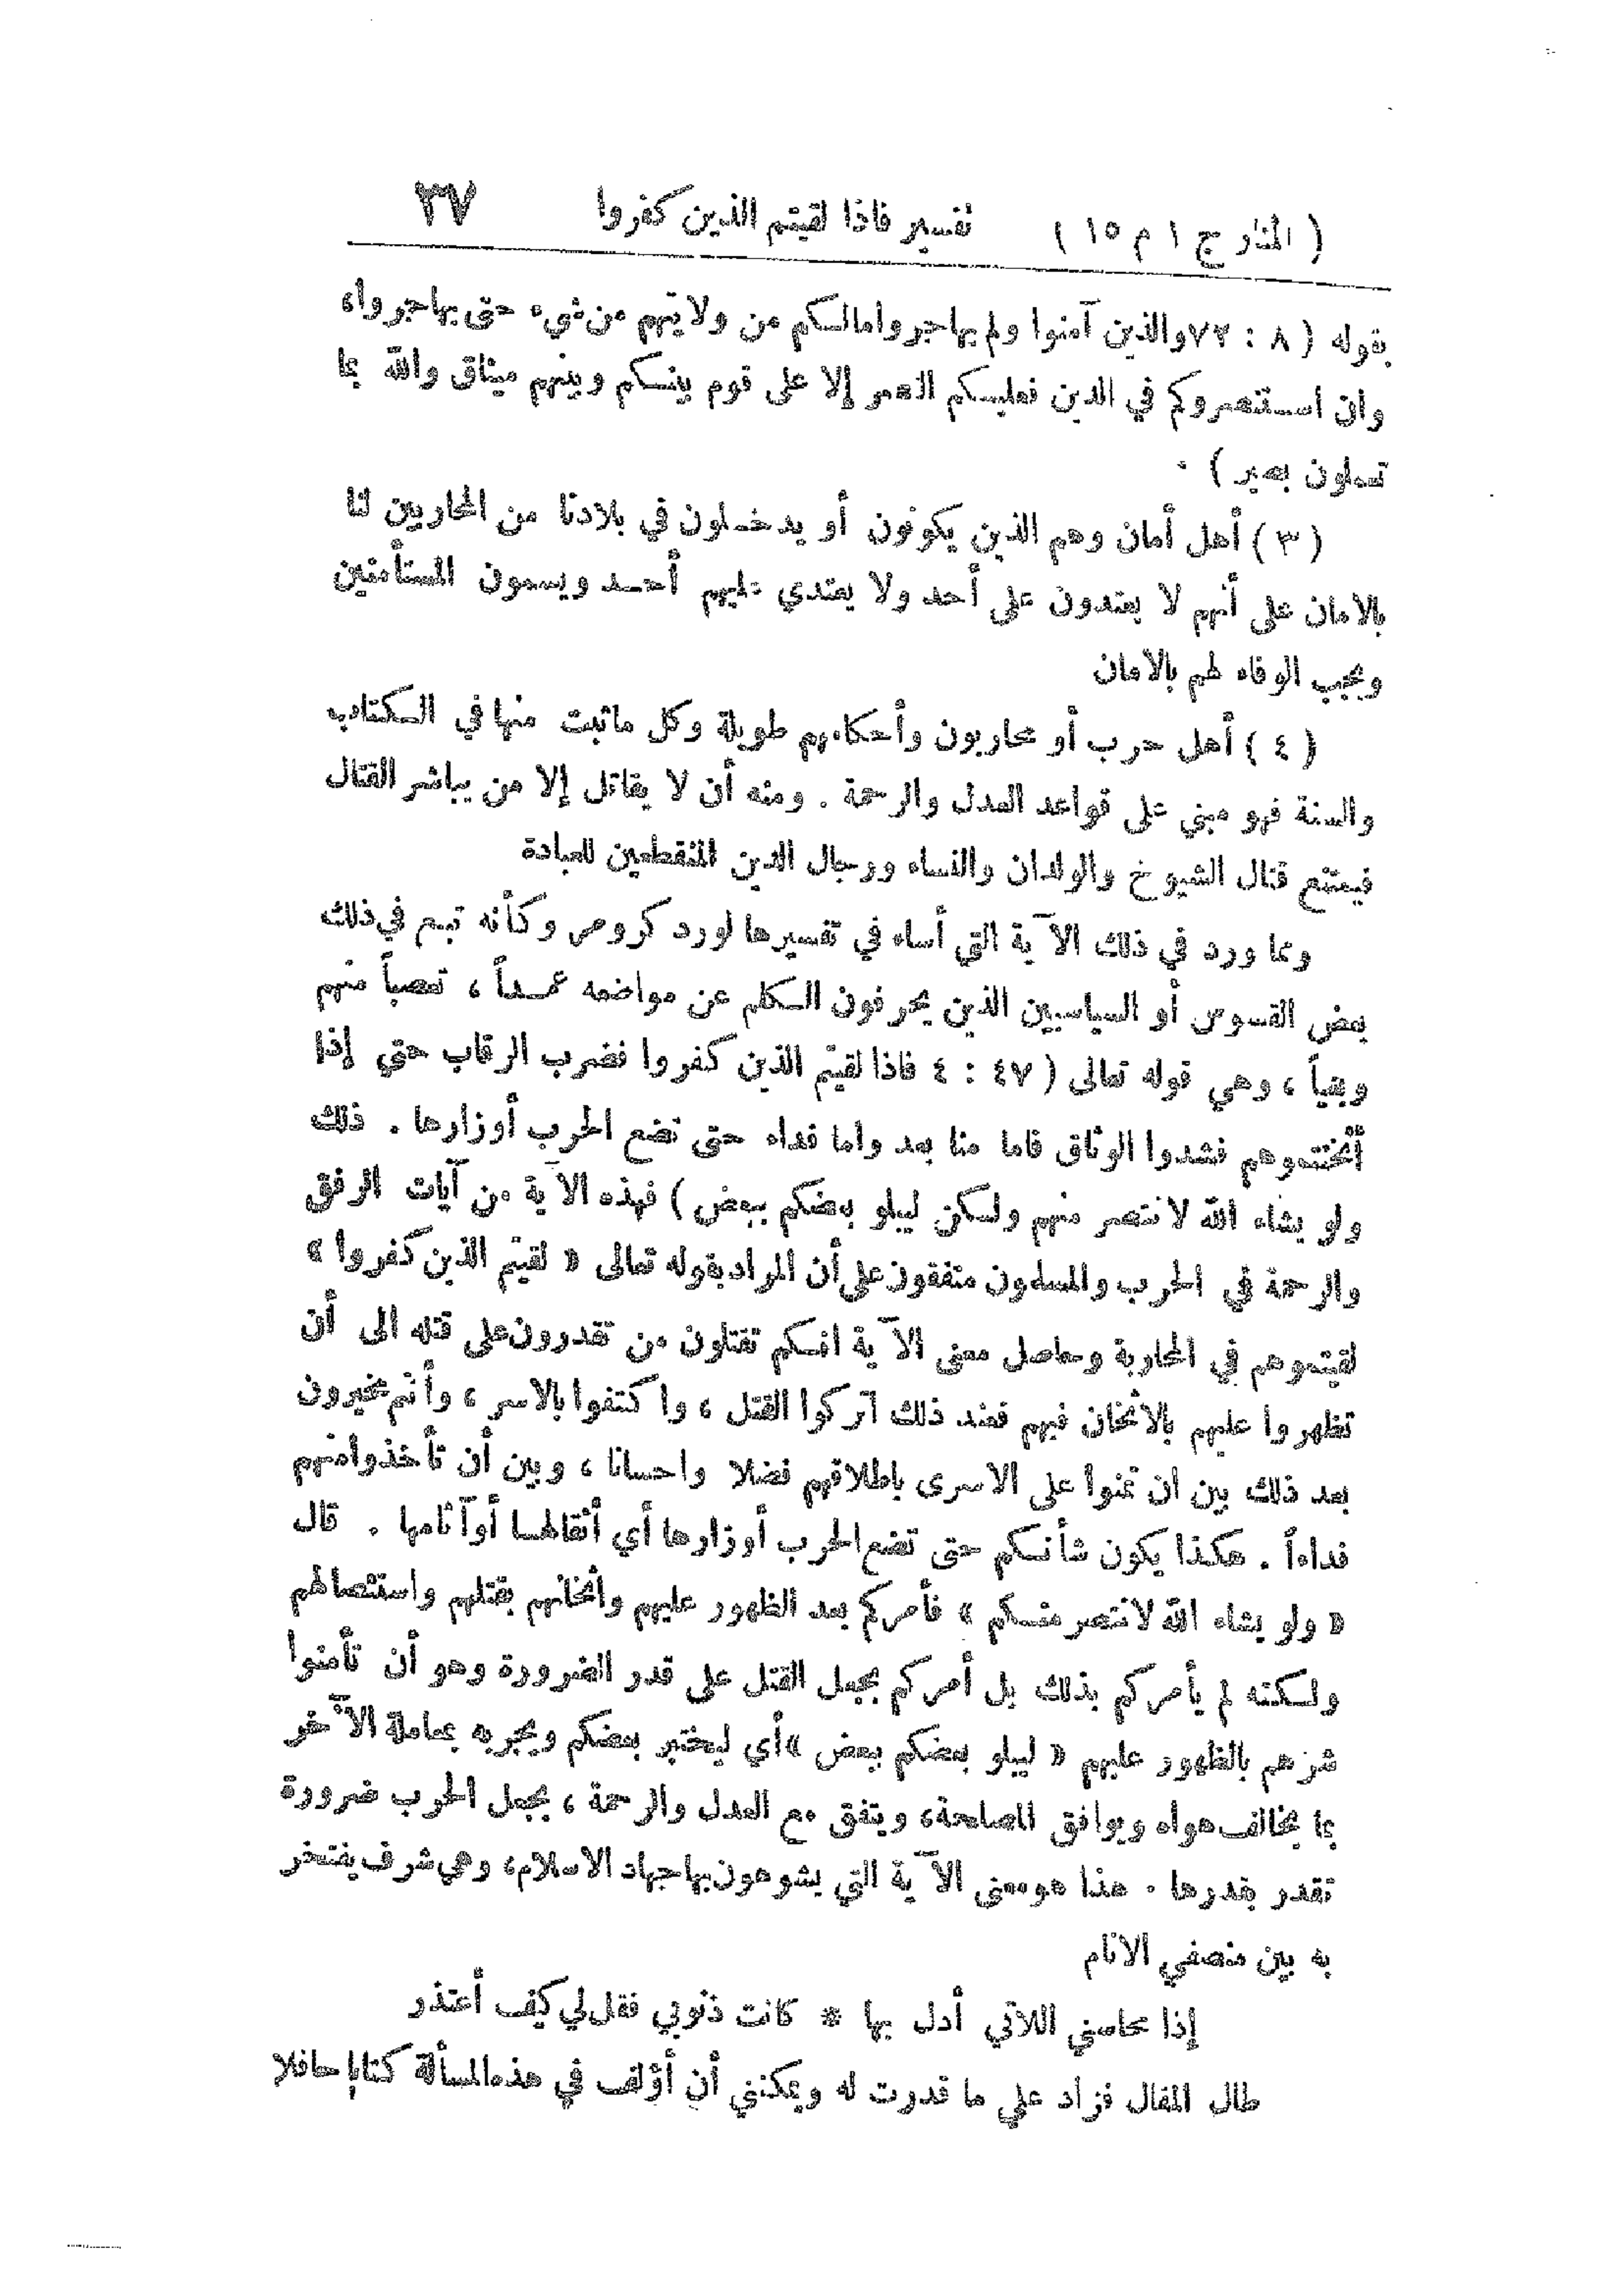 ( المنار ج ١ م ١٥ ) تفسير فاذا لقيتم الذين كفروا ٣٧
بقوله ( ٨ : ٧٢ والذين آمنوا ولم يهاجروا مالكم من ولايتهم من شيء حتى يهاجروا،
وان استنصروكم في الدين فعليكم النصر إلا على قوم بينكم وبينهم ميثاق والله بما
تعملون بصير ) .
( ٣ ) أهل أمان وهم الذين يكونون أو يدخلون في بلادنا من المحاربين لنا
بالامان على أنهم لا يعتدون على أحد ولا يعتدي عليهم أحد ويسمون المستأمنين
ويجب الوفاء لهم بالامان
( ٤ ) أهل حرب أو محاربون وأحكامهم طويلة وكل ماثبت منها في الكتاب
والسنة فهو مبني على قواعد العدل والرحمة . ومنه أن لا يقاتل إلا من يباشر القتال
فيمتنع قتال الشيوخ والولدان والنساء ورجال الدين المنقطعين للعبادة
ومما ورد في ذلك الآية التي أساء في تفسيرها لورد كرومر وكأنه تبع في ذلك
بعض القسوس أو السياسيين الذين يحرفون الكلم عن مواضعه عمداً ، تعصباً منهم
وبغياً ، وهي قوله تعالى ( ٤٧ : ٤ فاذا لقيتم الذين كفروا فضرب الرقاب حتى إذا
أثخنتموهم فشدوا الوثاق فاما منا بعد واما فداء حتى تضع الحرب أوزارها . ذلك
ولو يشاء الله لانتصر منهم ولكن ليبلو بعضكم ببعض ) فهذه الآية من آيات الرفق
والرحمة في الحرب والمسلمون متفقون على أن المراد بقوله تعالى « لقيتم الذين كفروا »
لقيتموهم في المحاربة وحاصل معنى الآية انكم تقتلون من تقدرون على قتله الى أن
تظهروا عليهم بالاثخان فيهم فعند ذلك اتركوا القتل ، واكتفوا بالاسر ، وأنتم مخيرون
بعد ذلك بين ان تمنوا على الاسرى باطلاقهم فضلا واحسانا ، وبين أن تأخذوا منهم
فداءاً . هكذا يكون شأنكم حتى تضع الحرب أوزارها أي أثقالها أو آثامها . قال
« ولو يشاء الله لانتصر منكم » فأمركم بعد الظهور عليهم واثخانهم بقتلهم واستئصالهم
ولكنه لم يأمركم بذلك بل أمركم بجعل القتل على قدر الضرورة وهو أن تأمنوا
شرهم بالظهور عليهم « ليبلو بعضكم ببعض » أي ليختبر بعضكم ويجربه بمعاملة الآخر
بما يخالف هواه ويوافق المصلحة، ويتفق مع العدل والرحمة ، بجعل الحرب ضرورة
تقدر بقدرها . هذا هو معنى الآية التي يشوهون بها جهاد الاسلام، وهي شرف يفتخر
به بين منصفي الانام
إذا محاسني اللاتي أدل بها * كانت ذنوبي فقل لي كيف أعتذر
طال المقال فزاد على ما قدرت له ويمكنني أن أؤلف في هذه المسألة كتابا حافلا